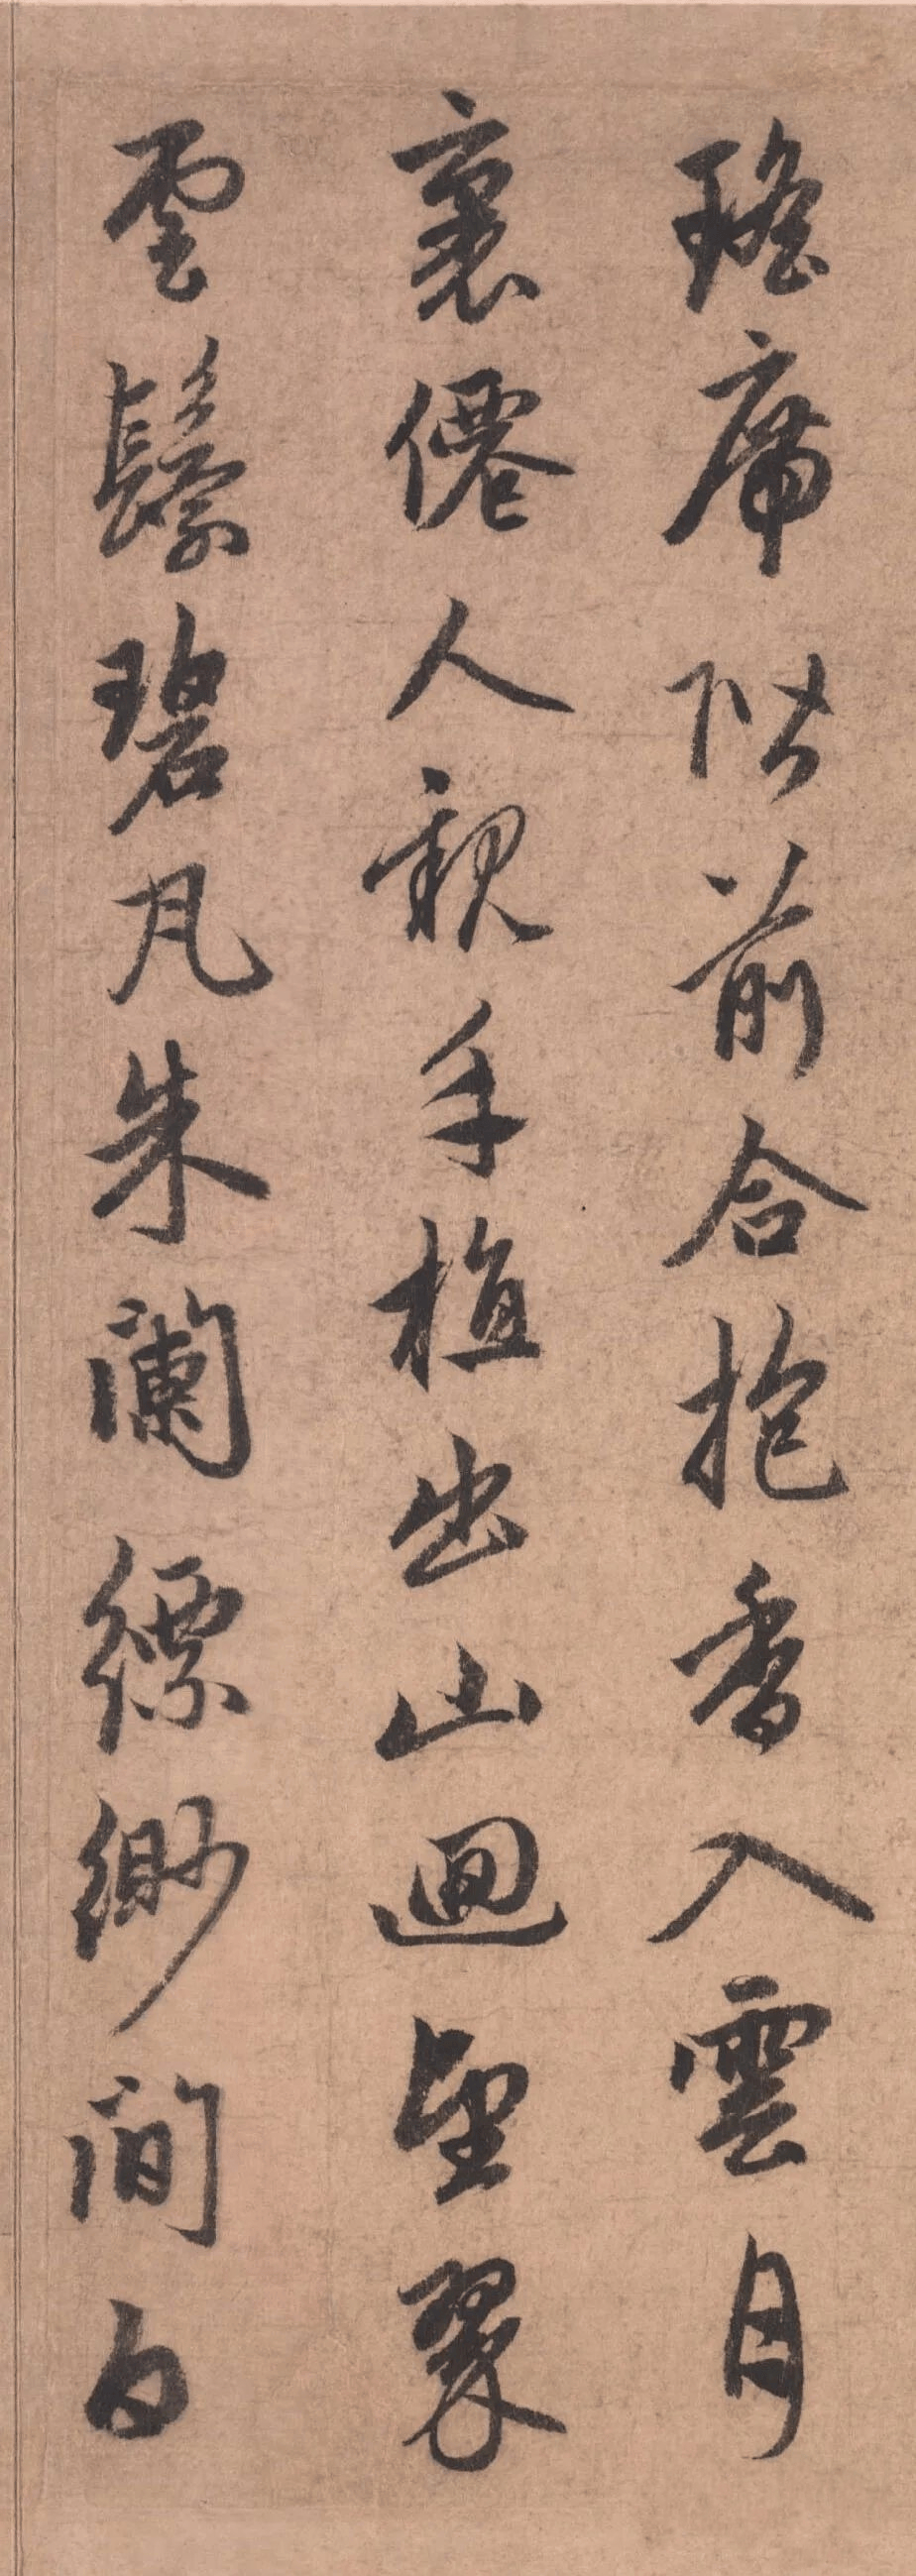 瑤席階前合抱香入雲月
裏僊人親手植出山迴望翠
雲鬟碧瓦朱闌縹緲間白